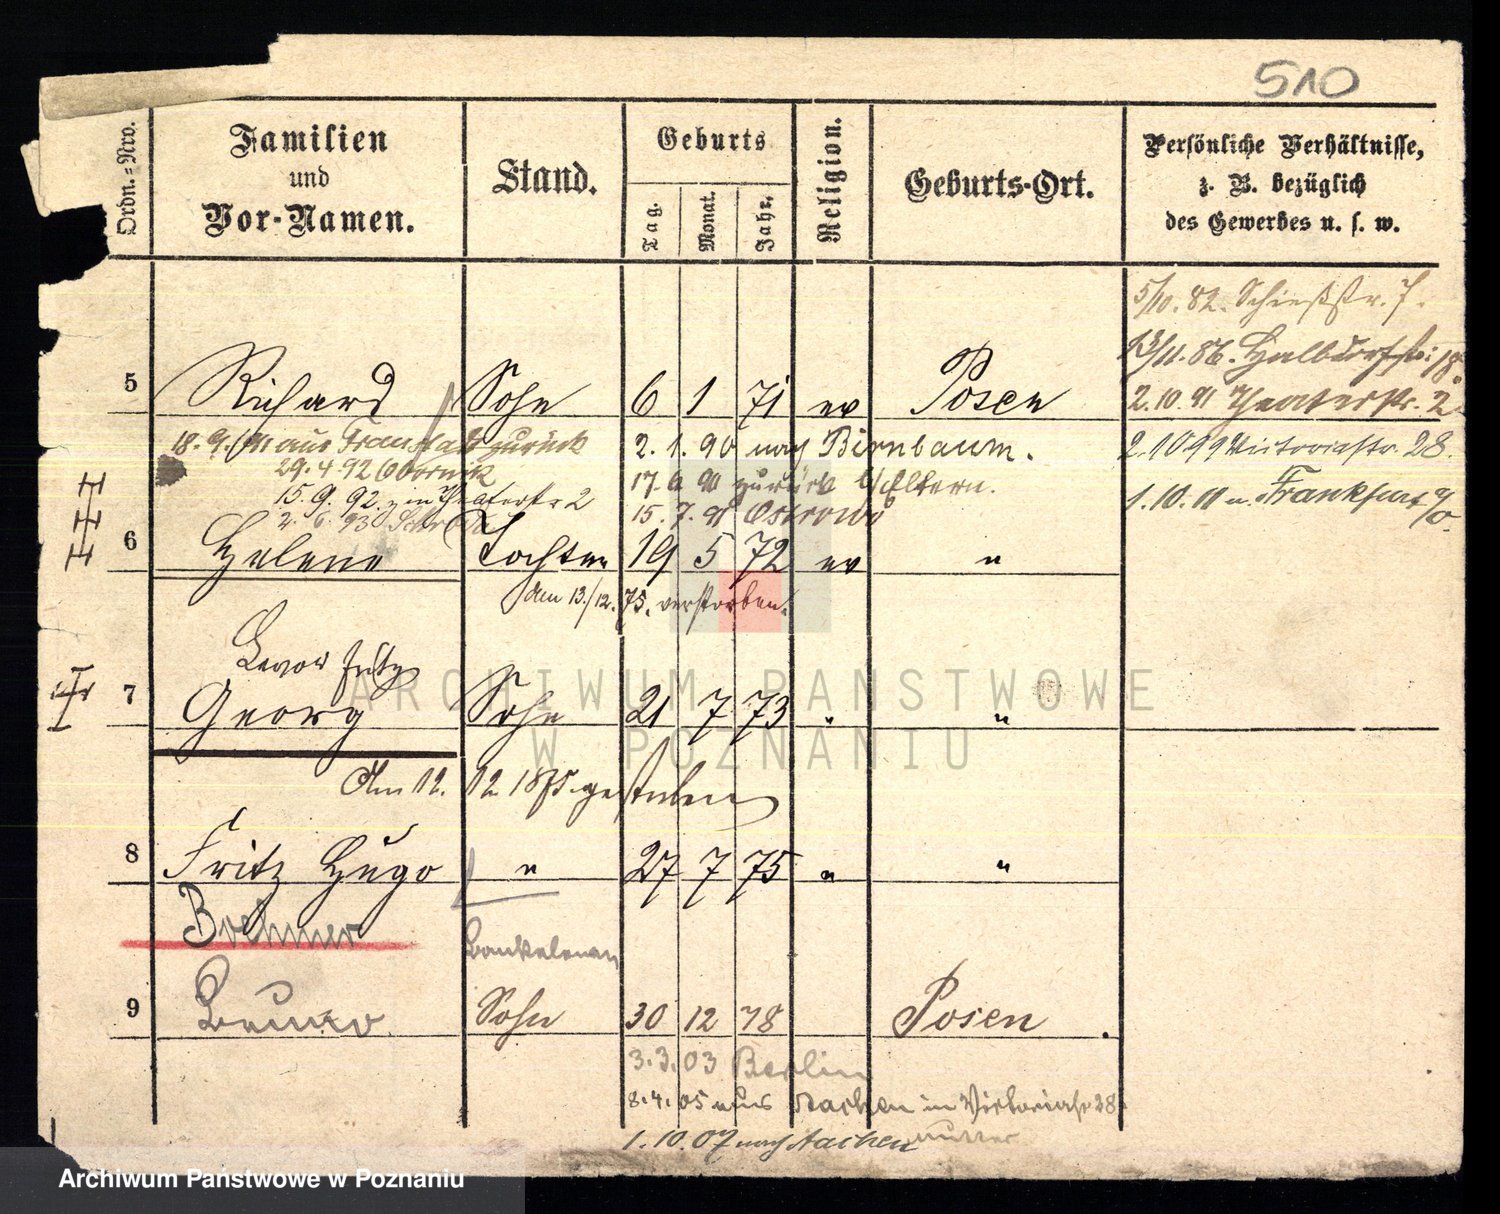 510
Ordn.=Nro.
Familien
und
Vor-Namen.
Stand.
Geburts
Tag.
Monat.
Jahr.
Religion.
Geburts-Ort.
Persönliche Verhältnisse,
z. B. bezüglich
des Gewerbes u. s. w.
5/10. 82. Schießstr. 7.
13/11. 86. Halbdorfstr: 18.
2.10.91 Theaterstr. 2
2.10 99 Victoriastr. 28.
1.10.11 n. Frankfurt a/O.
5 Richard Sohn 6 1 71 ev Posen
18.9.91 aus zurück
2.1.90 nach Birnbaum.
29.4 92 Obornik
17.6 90 zurück Eltern.
15.9.92 Theaterstr 2
15.7.91 Ostrowo
2.6.93
6 Helene Tochter 19 5 72 ev "
Am 13./12.75. verstorben.
Fritz
7 Georg Sohn 21 7 73 " "
Am 12. 12 1875 gestorben
8 Fritz Hugo " 27 7 75 " "
Boehmer
9 Bruno Sohn 30 12 78 Posen.
3.3.03 Berlin
8.4.05 aus Aachen in Victoriastr 28
1.10.07 nach Aachen
ARCHIWUM PAŃSTWOWE
W POZNANIU
Archiwum Państwowe w Poznaniu